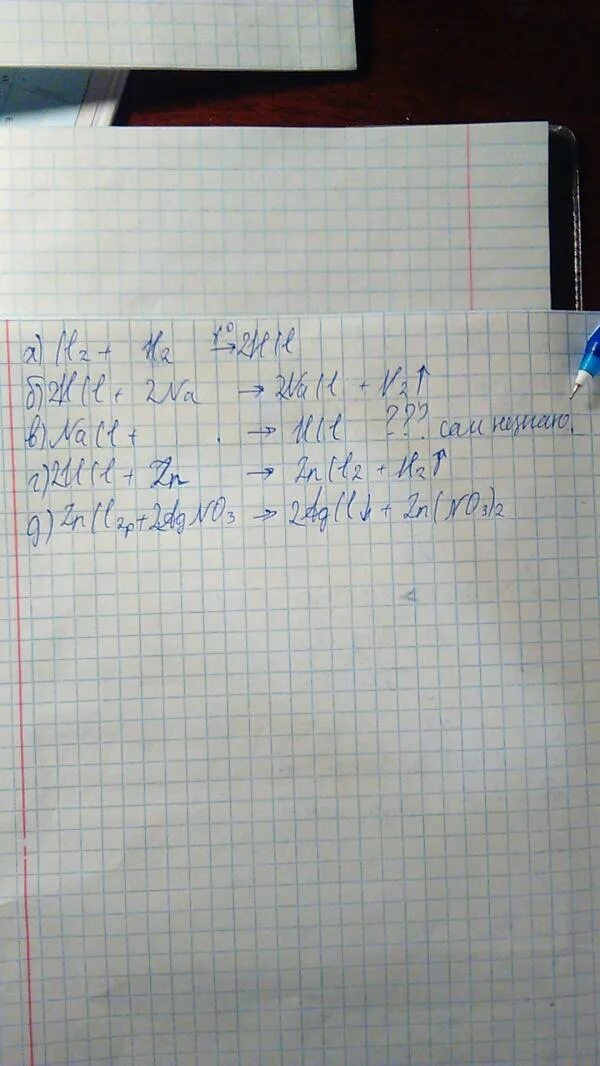 а) Cl₂ + H₂ t°→ 2HCl
б) 2HCl + 2Na → 2NaCl + H₂↑
в) NaCl + . → HCl ??? сам незнаю.
г) 2HCl + Zn → ZnCl₂ + H₂↑
д) ZnCl₂ + 2AgNO₃ → 2AgCl↓ + Zn(NO₃)₂